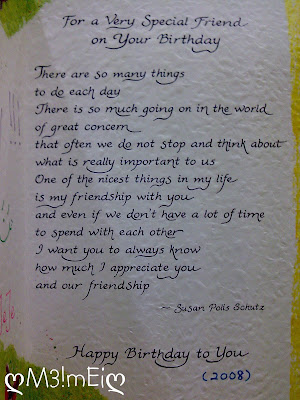 For a Very Special Friend
on Your Birthday
There are so many things
to do each day
There is so much going on in the world
of great concern
that often we do not stop and think about
what is really important to us
One of the nicest things in my life
is my friendship with you
and even if we don't have a lot of time
to spend with each other
I want you to always know
how much I appreciate you
and our friendship
~ Susan Polis Schutz
Happy Birthday to You
(2008)
ღM3!mEiღ